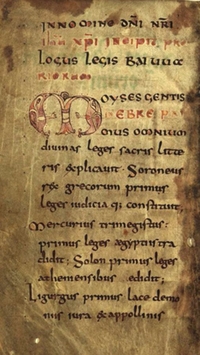 INNOMINE DNI NRI
IHU XPI INCIPIT PRO
LOGUS LEGIS BAIUUA
RIORUM
MOYSES GENTIS
HEBREE PRI
MUS OMNIUM
divinas leges sacris litte
ris explicavit. foroneus
rex grecorum primus
leges iudiciaq; constituit,
Mercurius trimegistus:
primus leges aegyptiis tra
didit; Solon primus leges
atheniensibus edidit;
Ligurgus primus lacedemo
niis iura & appollinis